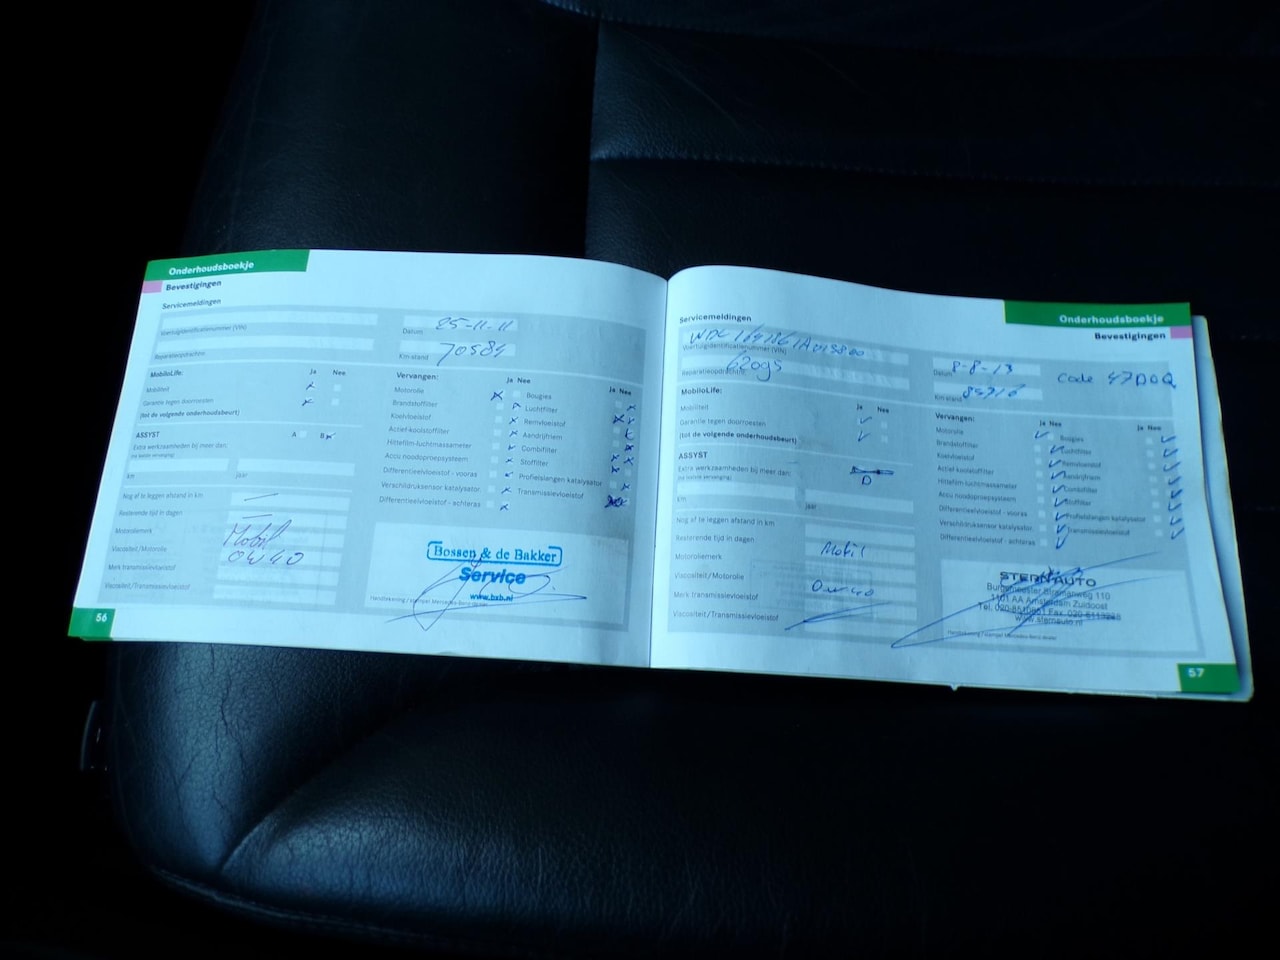 Onderhoudsboekje
Bevestigingen
Servicemeldingen
Voertuigidentificatienummer (VIN)
Reparatieopdrachtnr.
Datum 25-11-11
Km-stand 70584
MobiloLife: Ja Nee
Mobiliteit
Garantie tegen doorroesten
(tot de volgende onderhoudsbeurt)
ASSYST A B
Extra werkzaamheden bij meer dan:
km jaar
Nog af te leggen afstand in km
Resterende tijd in dagen
Motoroliemerk Mobil
Viscositeit/Motorolie 0W40
Merk transmissievloeistof
Viscositeit/Transmissievloeistof
Vervangen: Ja Nee Ja Nee
Motorolie Bougies
Brandstoffilter Luchtfilter
Koelvloeistof Remvloeistof
Actief-koolstoffilter Aandrijfriem
Hittefilm-luchtmassameter Combifilter
Accu noodoproepsysteem Stoffilter
Differentieelvloeistof - vooras Profielslangen katalysator
Verschildruksensor katalysator Transmissievloeistof
Differentieelvloeistof - achteras
Bossen & de Bakker
Service
www.bxb.nl
Handtekening / stempel Mercedes-Benz-dealer
56
Onderhoudsboekje
Bevestigingen
Servicemeldingen
Voertuigidentificatienummer (VIN)
Reparatieopdrachtnr.
Datum 8-8-13
Km-stand
Code 47DOQ
MobiloLife: Ja Nee
Mobiliteit
Garantie tegen doorroesten
(tot de volgende onderhoudsbeurt)
ASSYST
D
Extra werkzaamheden bij meer dan:
km jaar
Nog af te leggen afstand in km
Resterende tijd in dagen
Motoroliemerk Mobil
Viscositeit/Motorolie
Merk transmissievloeistof 0W40
Viscositeit/Transmissievloeistof
Vervangen: Ja Nee Ja Nee
Motorolie Bougies
Brandstoffilter Luchtfilter
Koelvloeistof Remvloeistof
Actief-koolstoffilter Aandrijfriem
Hittefilm-luchtmassameter Combifilter
Accu noodoproepsysteem Stoffilter
Differentieelvloeistof - vooras Profielslangen katalysator
Verschildruksensor katalysator Transmissievloeistof
Differentieelvloeistof - achteras
STERN AUTO
Burgemeester Stramanweg 110
1101 AA Amsterdam Zuidoost
www.sternauto.nl
Handtekening / stempel Mercedes-Benz-dealer
57